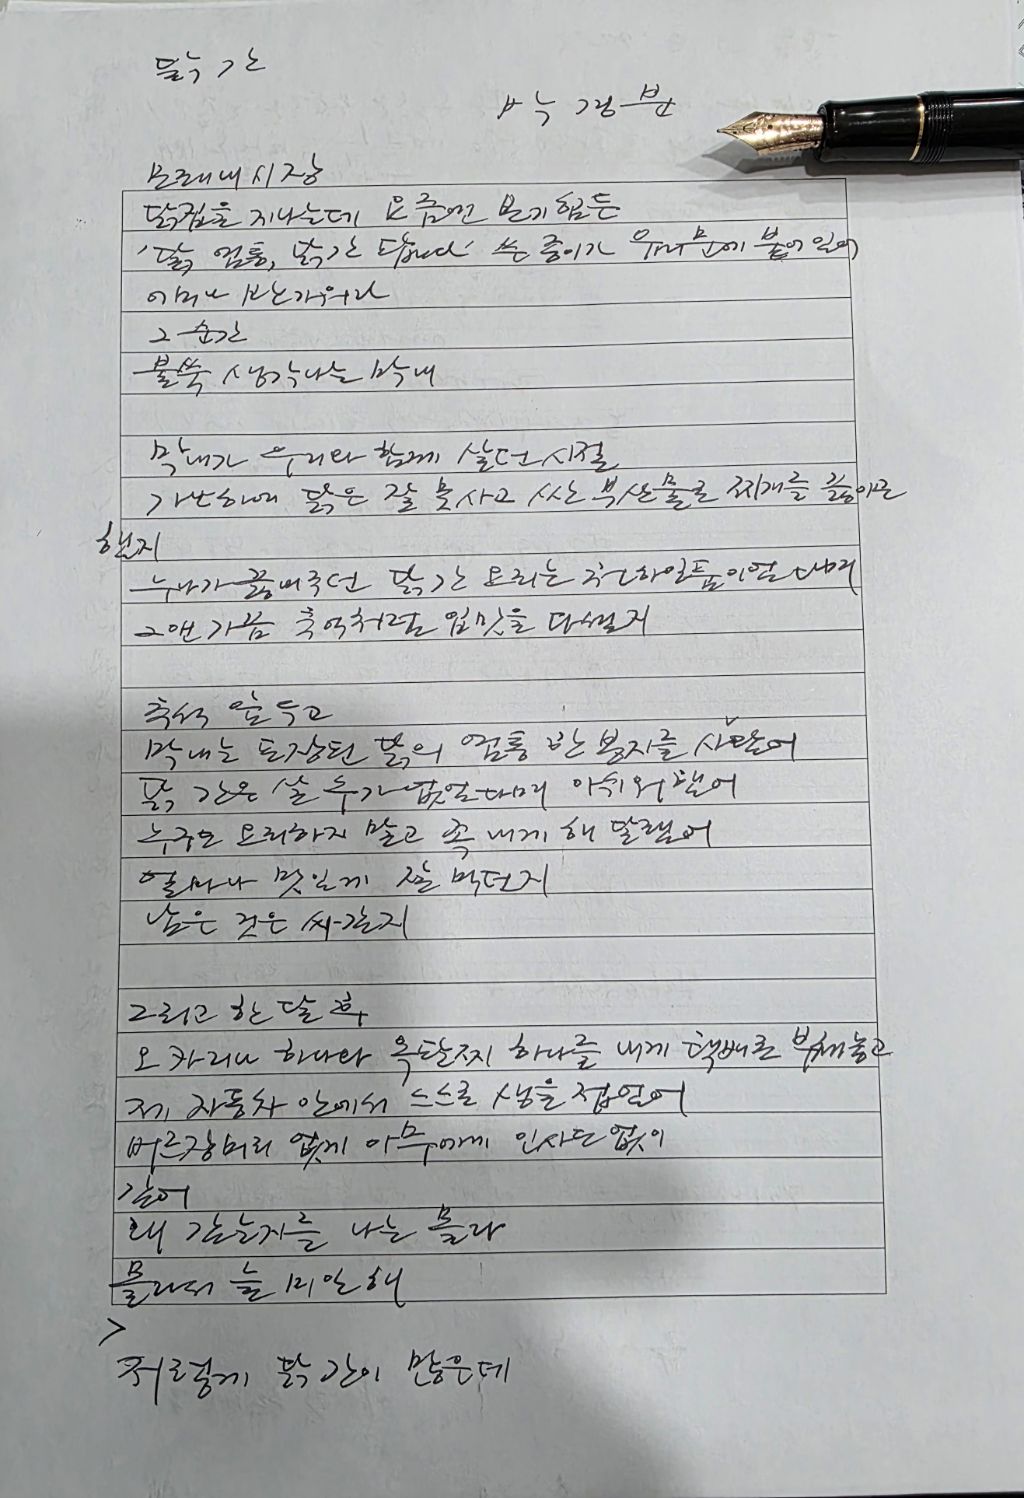 닭 간
박경분
모래내시장
닭집을 지나는데 요즘엔 보기 힘든
'닭 염통, 닭 간 팝니다' 쓴 종이가 유리문에 붙어 있어
어머나 반가워라
그 순간
불쑥 생각나는 막내
막내가 우리와 함께 살던 시절
가난하여 닭은 잘 못 사고 싼 부산물로 찌개를 끓이곤
했지
누나가 끓여주던 닭 간 요리는 천하일품이었다며
그앤 가끔 추억처럼 입맛을 다셨지
추석 앞두고
막내는 포장된 닭의 염통 반 봉지를 사왔어
닭 간은 살 수가 없었다며 아쉬워했어
누구도 요리하지 말고 꼭 내게 해 달랬어
얼마나 맛있게 잘 먹던지
남은 것은 싸갔지
그리고 한 달 후
오카리나 하나와 옥반지 하나를 내게 택배로 부쳐놓고
제 자동차 안에서 스스로 생을 접었어
버르장머리 없게 아무에게 인사도 없이
갔어
왜 갔는지를 나는 몰라
몰라서 늘 미안해
>
저렇게 닭 간이 많은데